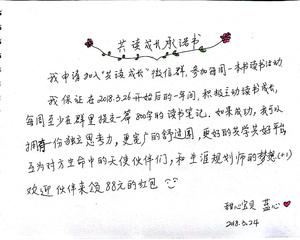 共读成长承诺书
我申请加入“共读成长”微信群，参加每周一本书读书活动
我保证在2018.3.26开始后的一年间，积极主动读书成长，
每周至少在群里提交一篇800字的读书笔记。如果成功，我可以
拥有一份独立思考力，更宽广的舒适圈，更好的共学共好平台，
互为对方生命中的天使伙伴们，和生涯规划师的梦想(+1)
欢迎伙伴来领88元的红包
甜心宝贝 蓝心
2018.3.24